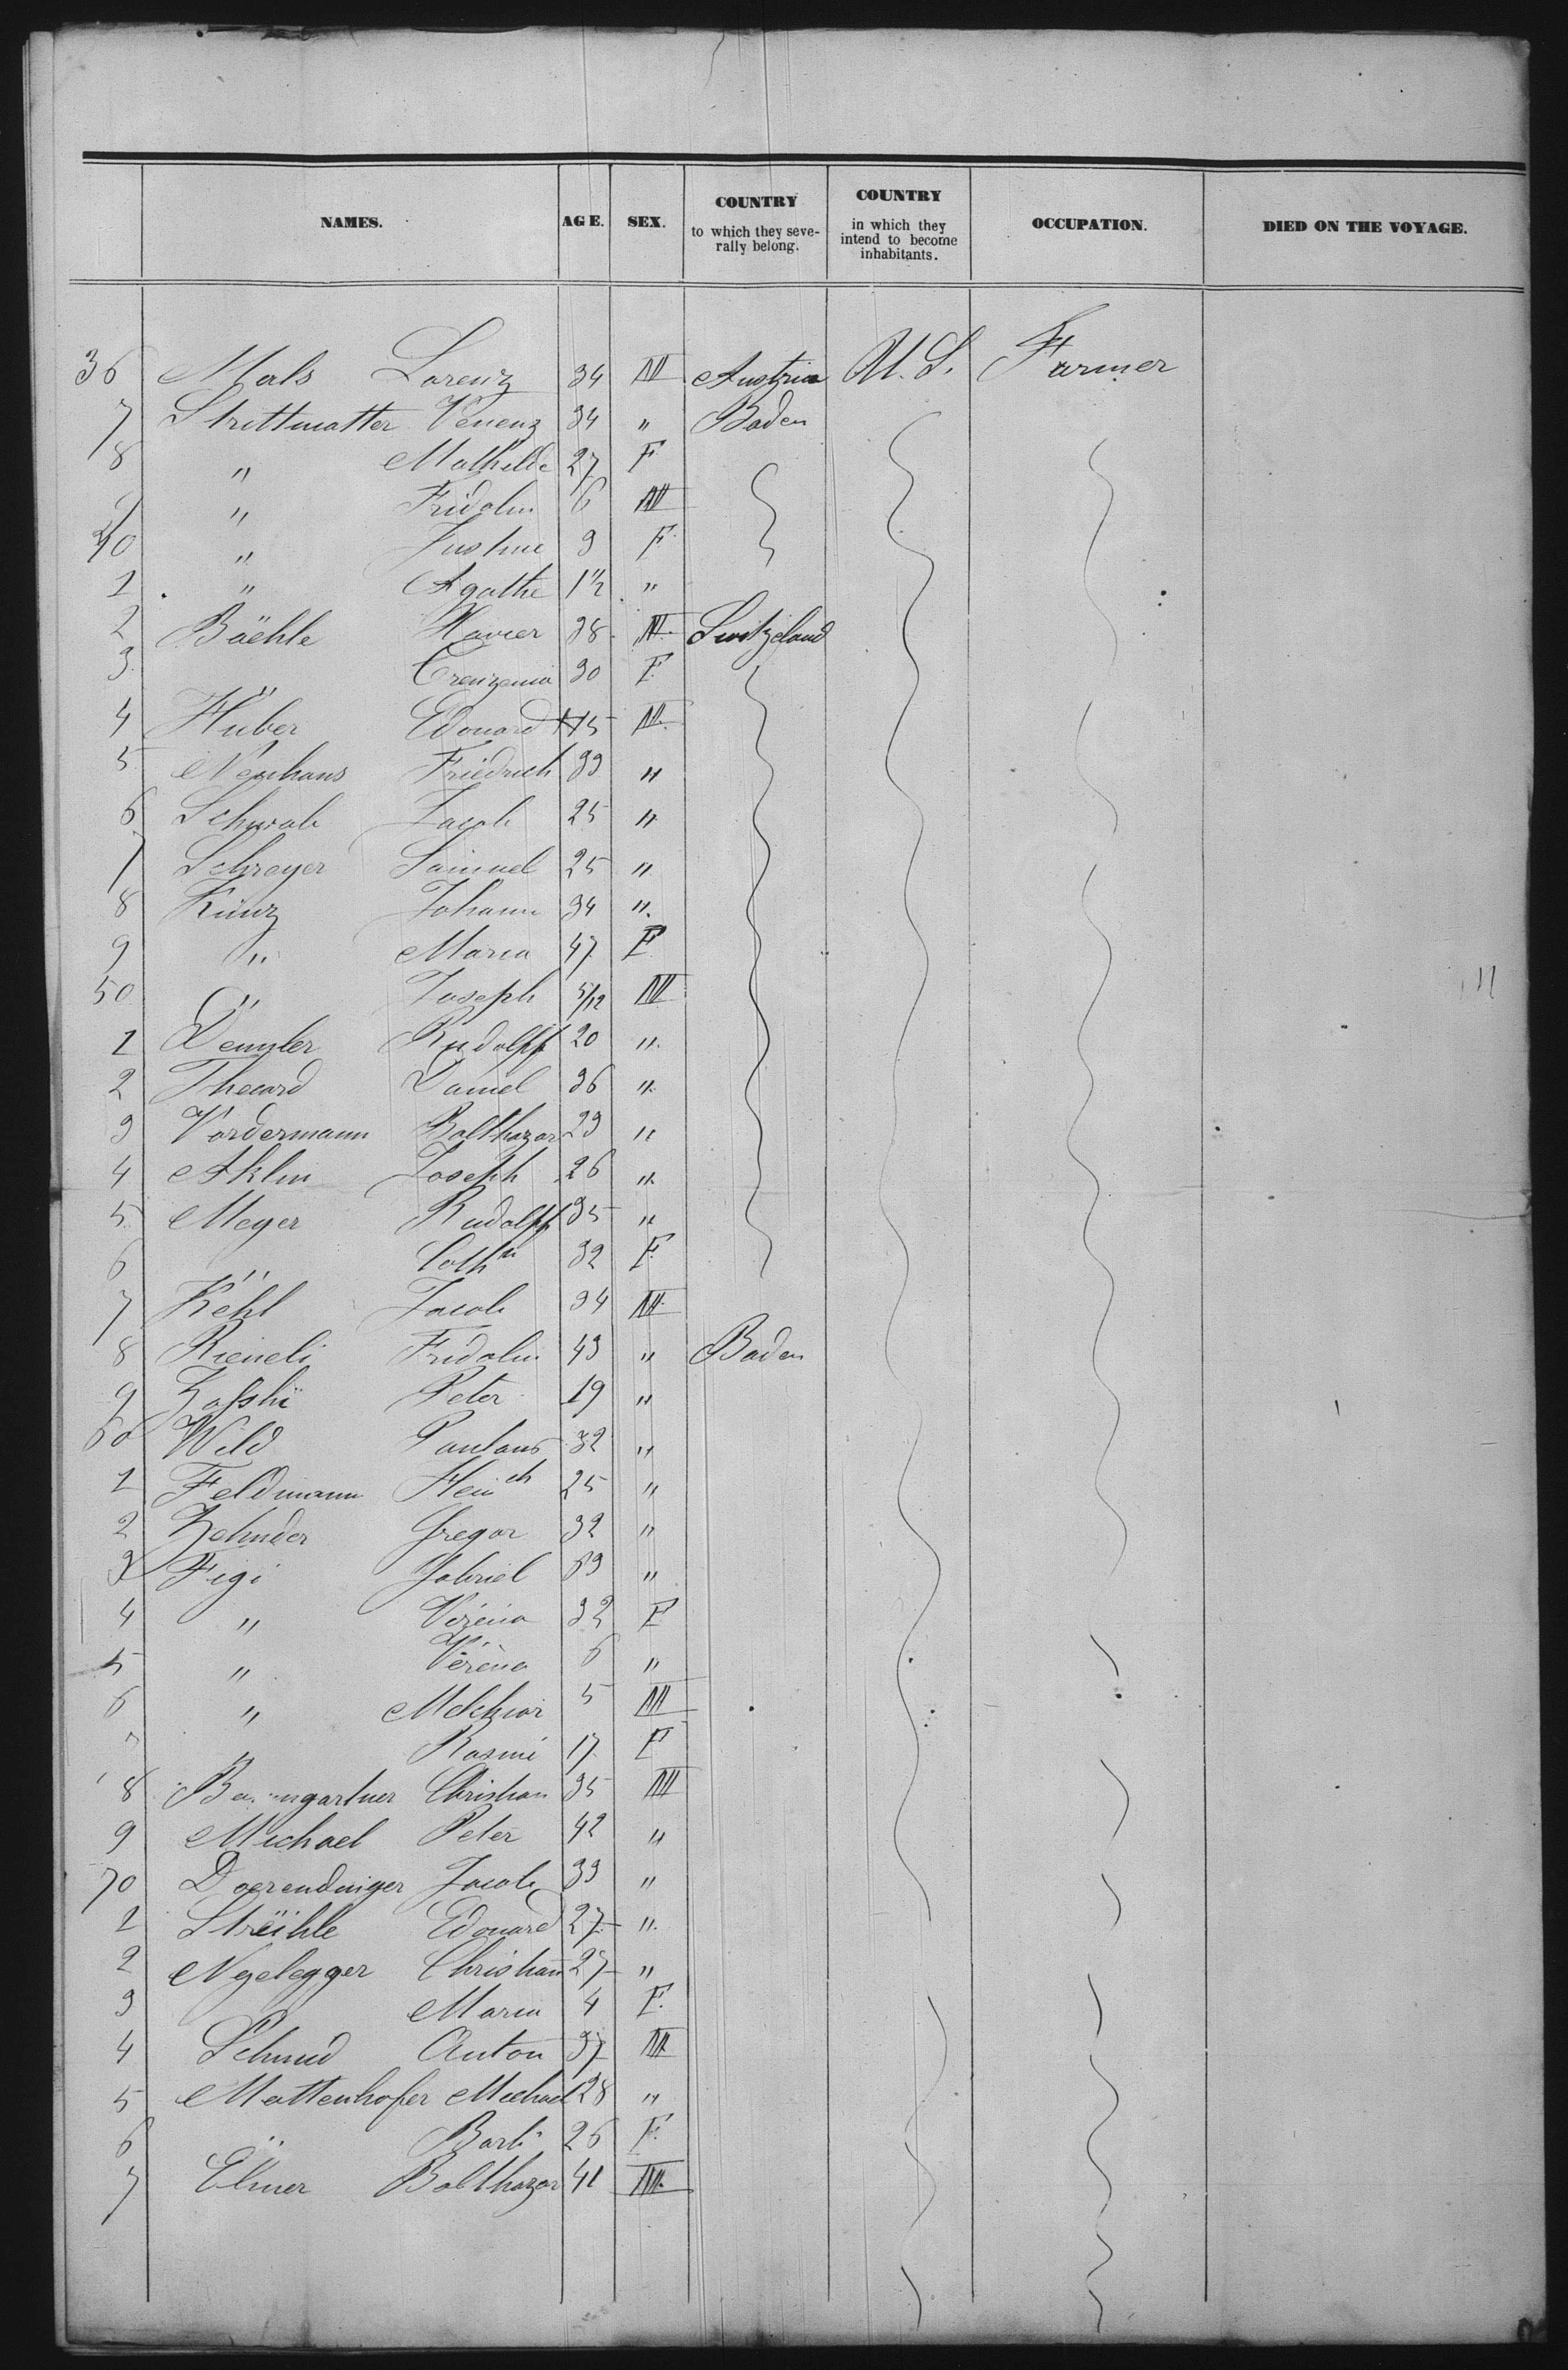 NAMES. AGE. SEX. COUNTRY to which they seve-rally belong. COUNTRY in which they intend to become inhabitants. OCCUPATION. DIED ON THE VOYAGE.
36 Mals Lorenz 34 M Austria U.S. Farmer
7 Strittmatter Verenz 34 " Baden
8 " Mathilde 27 F
9 " Fridolin 6 M
40 " Justine 9 F
1 " Agathe 1½ "
2 Bäehle Xavier 38 M Switzeland
3 " Crenzenia 30 F
4 Huber Edouard 45 M
5 Neuhaus Friedrich 39 "
6 Schwab Jacob 25 "
7 Schreyer Samuel 25 "
8 Kunz Johann 34 "
9 " Maria 47 F
50 " Joseph 5/12 M
1 Demler Rudolff 20 "
2 Daniel 36 "
3 Vordermann Balthazar 23 "
4 Aklin Joseph 26 "
5 Meyer Rudolff 35 "
6 " Cath 32 F
7 Kehl Jacob 34 M
8 Rieneli Fridolin 43 " Baden
9 Peter 19 "
60 Wild 32 "
1 Feldmann Heinch 25 "
2 Zehnder Gregor 32 "
3 Figi Gabriel 59 "
4 " Verena 32 F
5 " Verena 6 "
6 " Melchior 5 M
7 " Rosini 17 F
8 Baumgartner Christian 35 M
9 Michael Peter 42 "
70 Doerendinger Jacob 39 "
1 Strühle Edouard 27 "
2 Nyelegger Christian 27 "
3 Maria 4 F.
4 Schmid Anton 37 M
5 Mattenhofer Michael 28 "
6 " Barb 26 F.
7 Elmer Balthazar 41 M